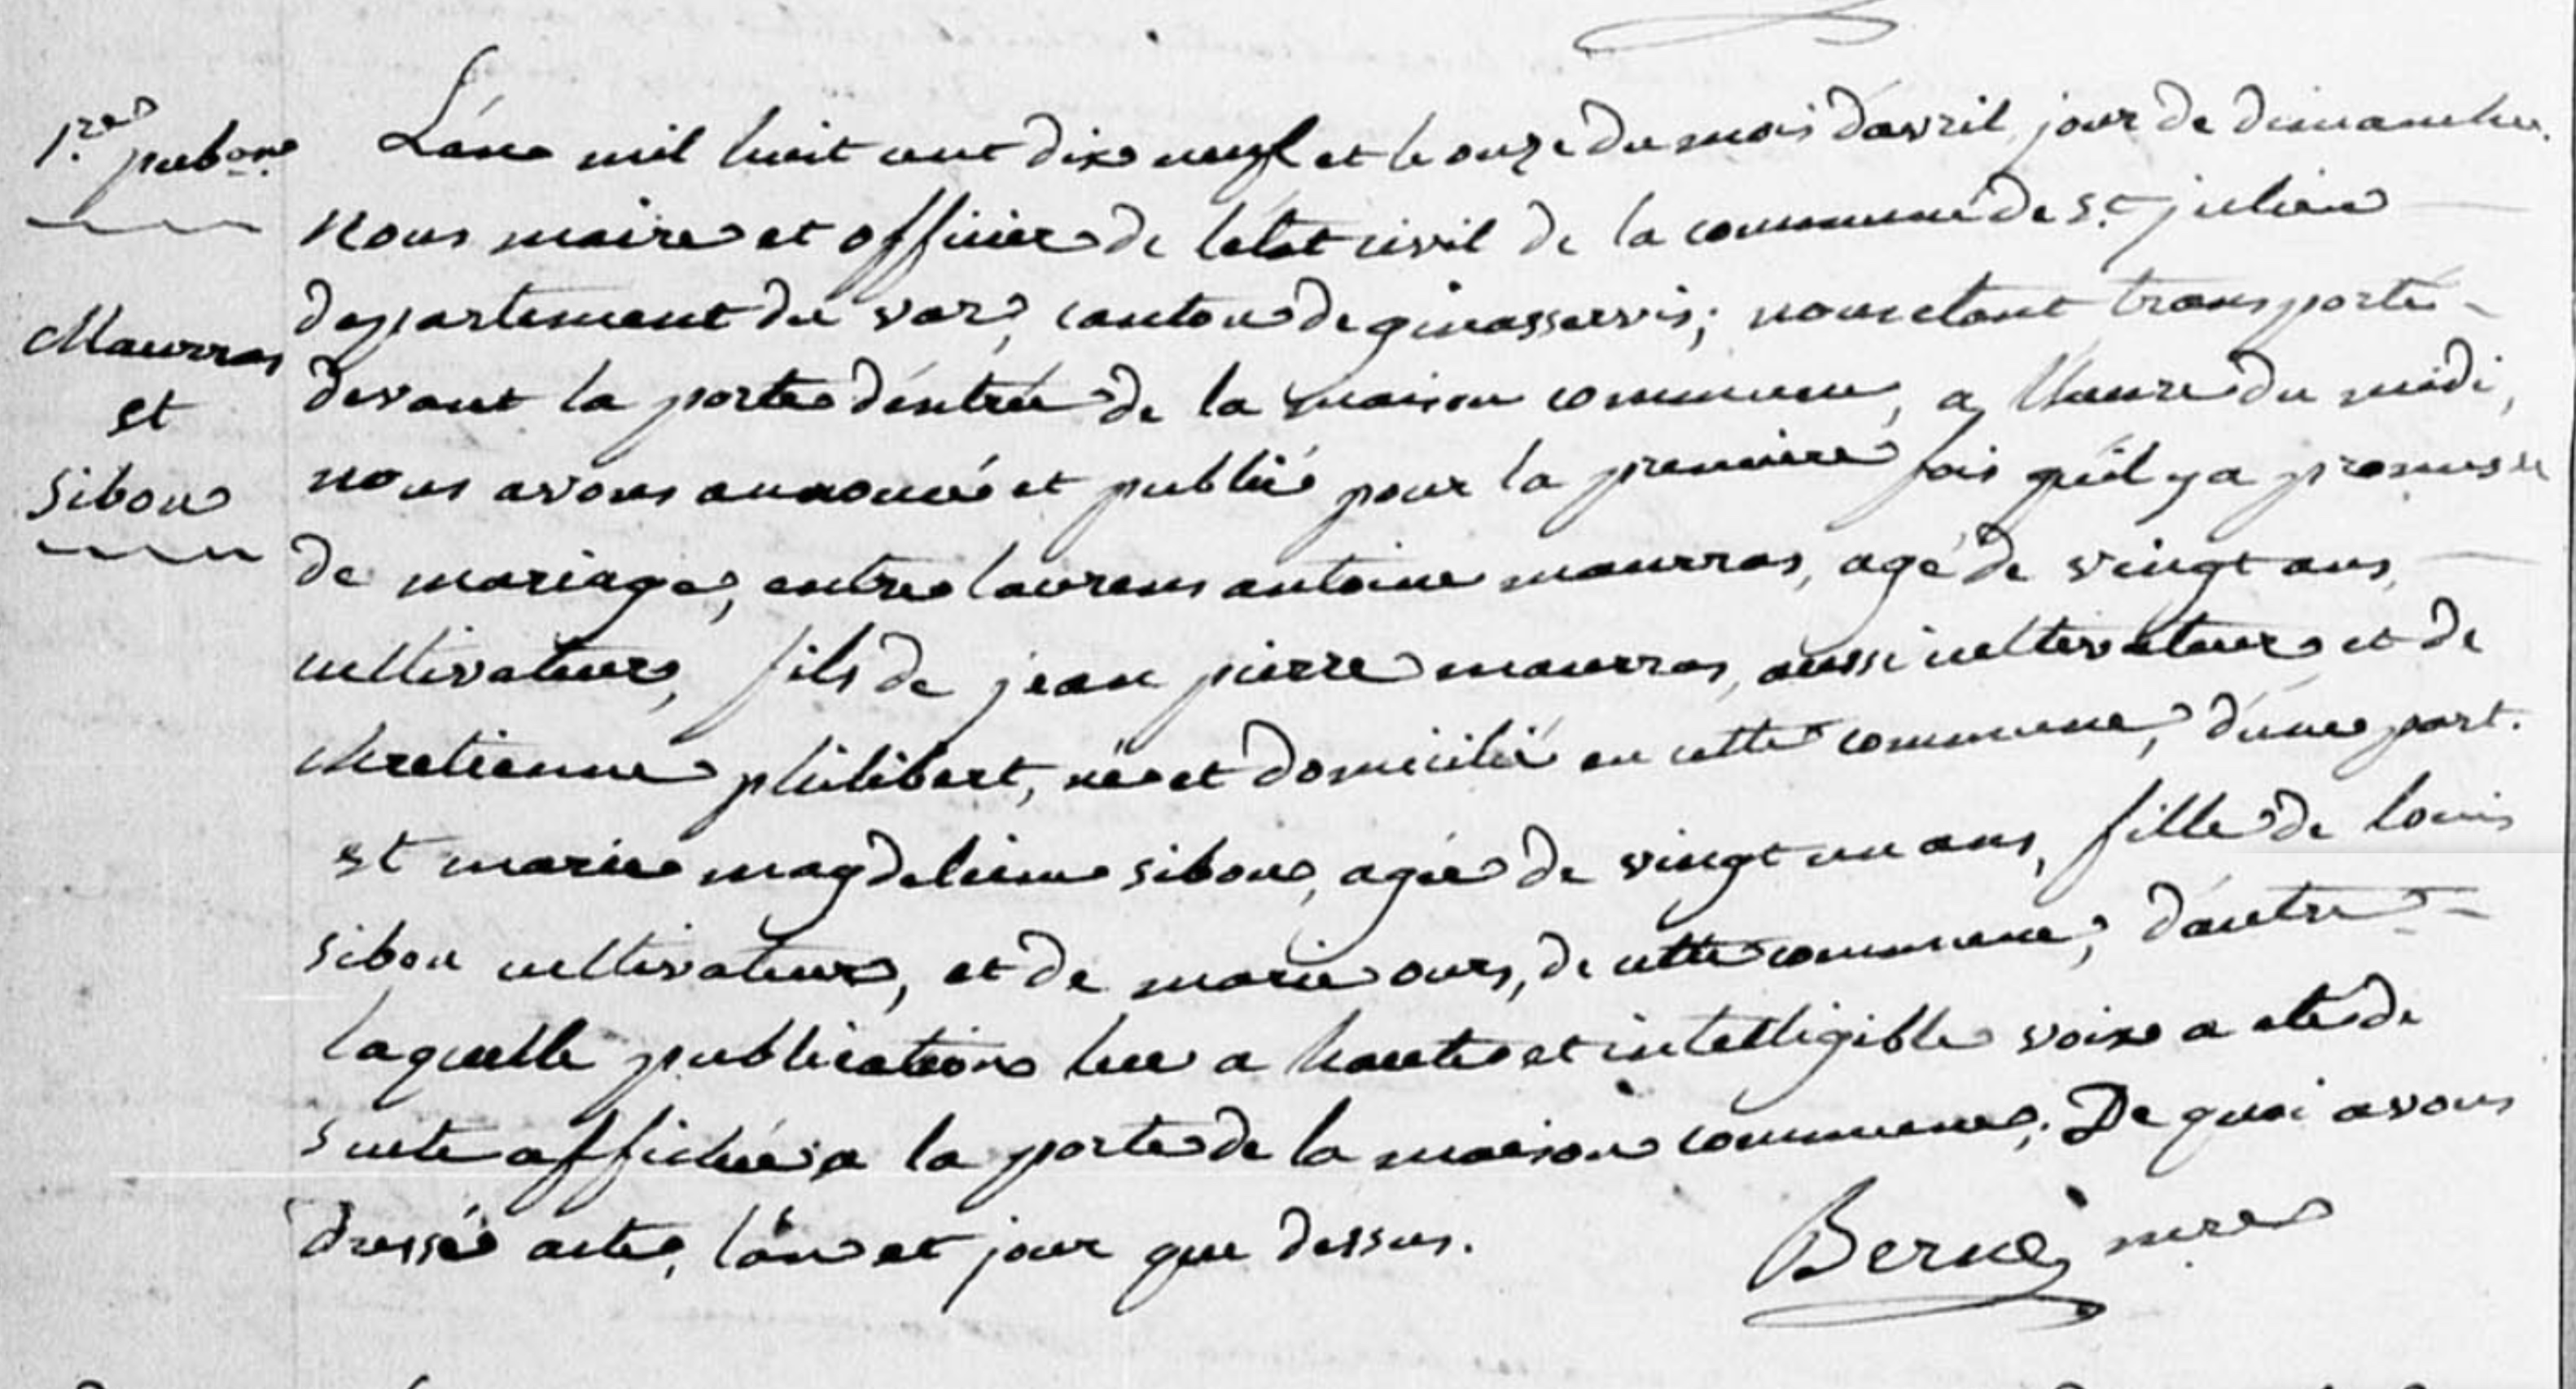 1.re pub.on
Maurras
et
Sibon
L'an mil huit cent dix neuf et le onze du mois d'avril jour de dimanche.
Nous maire et officier de l'état civil de la commune de St. julien
departement du var, canton de ginasservis; nous etant transporté
devant la porte d'entrée de la maison commune, a l'heure du midi,
nous avons annoncé et publié pour la premiere fois qu'il y a promesse
de mariage, entre laurens antoine maurras, agé de vingt ans,
cultivateur, fils de jean pierre maurras, aussi cultivateur et de
chretienne philibert, né et domicilié en cette commune, d'une part.
et marie magdeleine sibon, agée de vingt un ans, fille de louis
sibon cultivateur, et de marie ours, de cette commune, d'autre
laquelle publication lue a haute et intelligible voix a eté de
suite affichée a la porte de la maison commune. De quoi avons
dressé acte, l'an et jour que dessus.
Berne mre